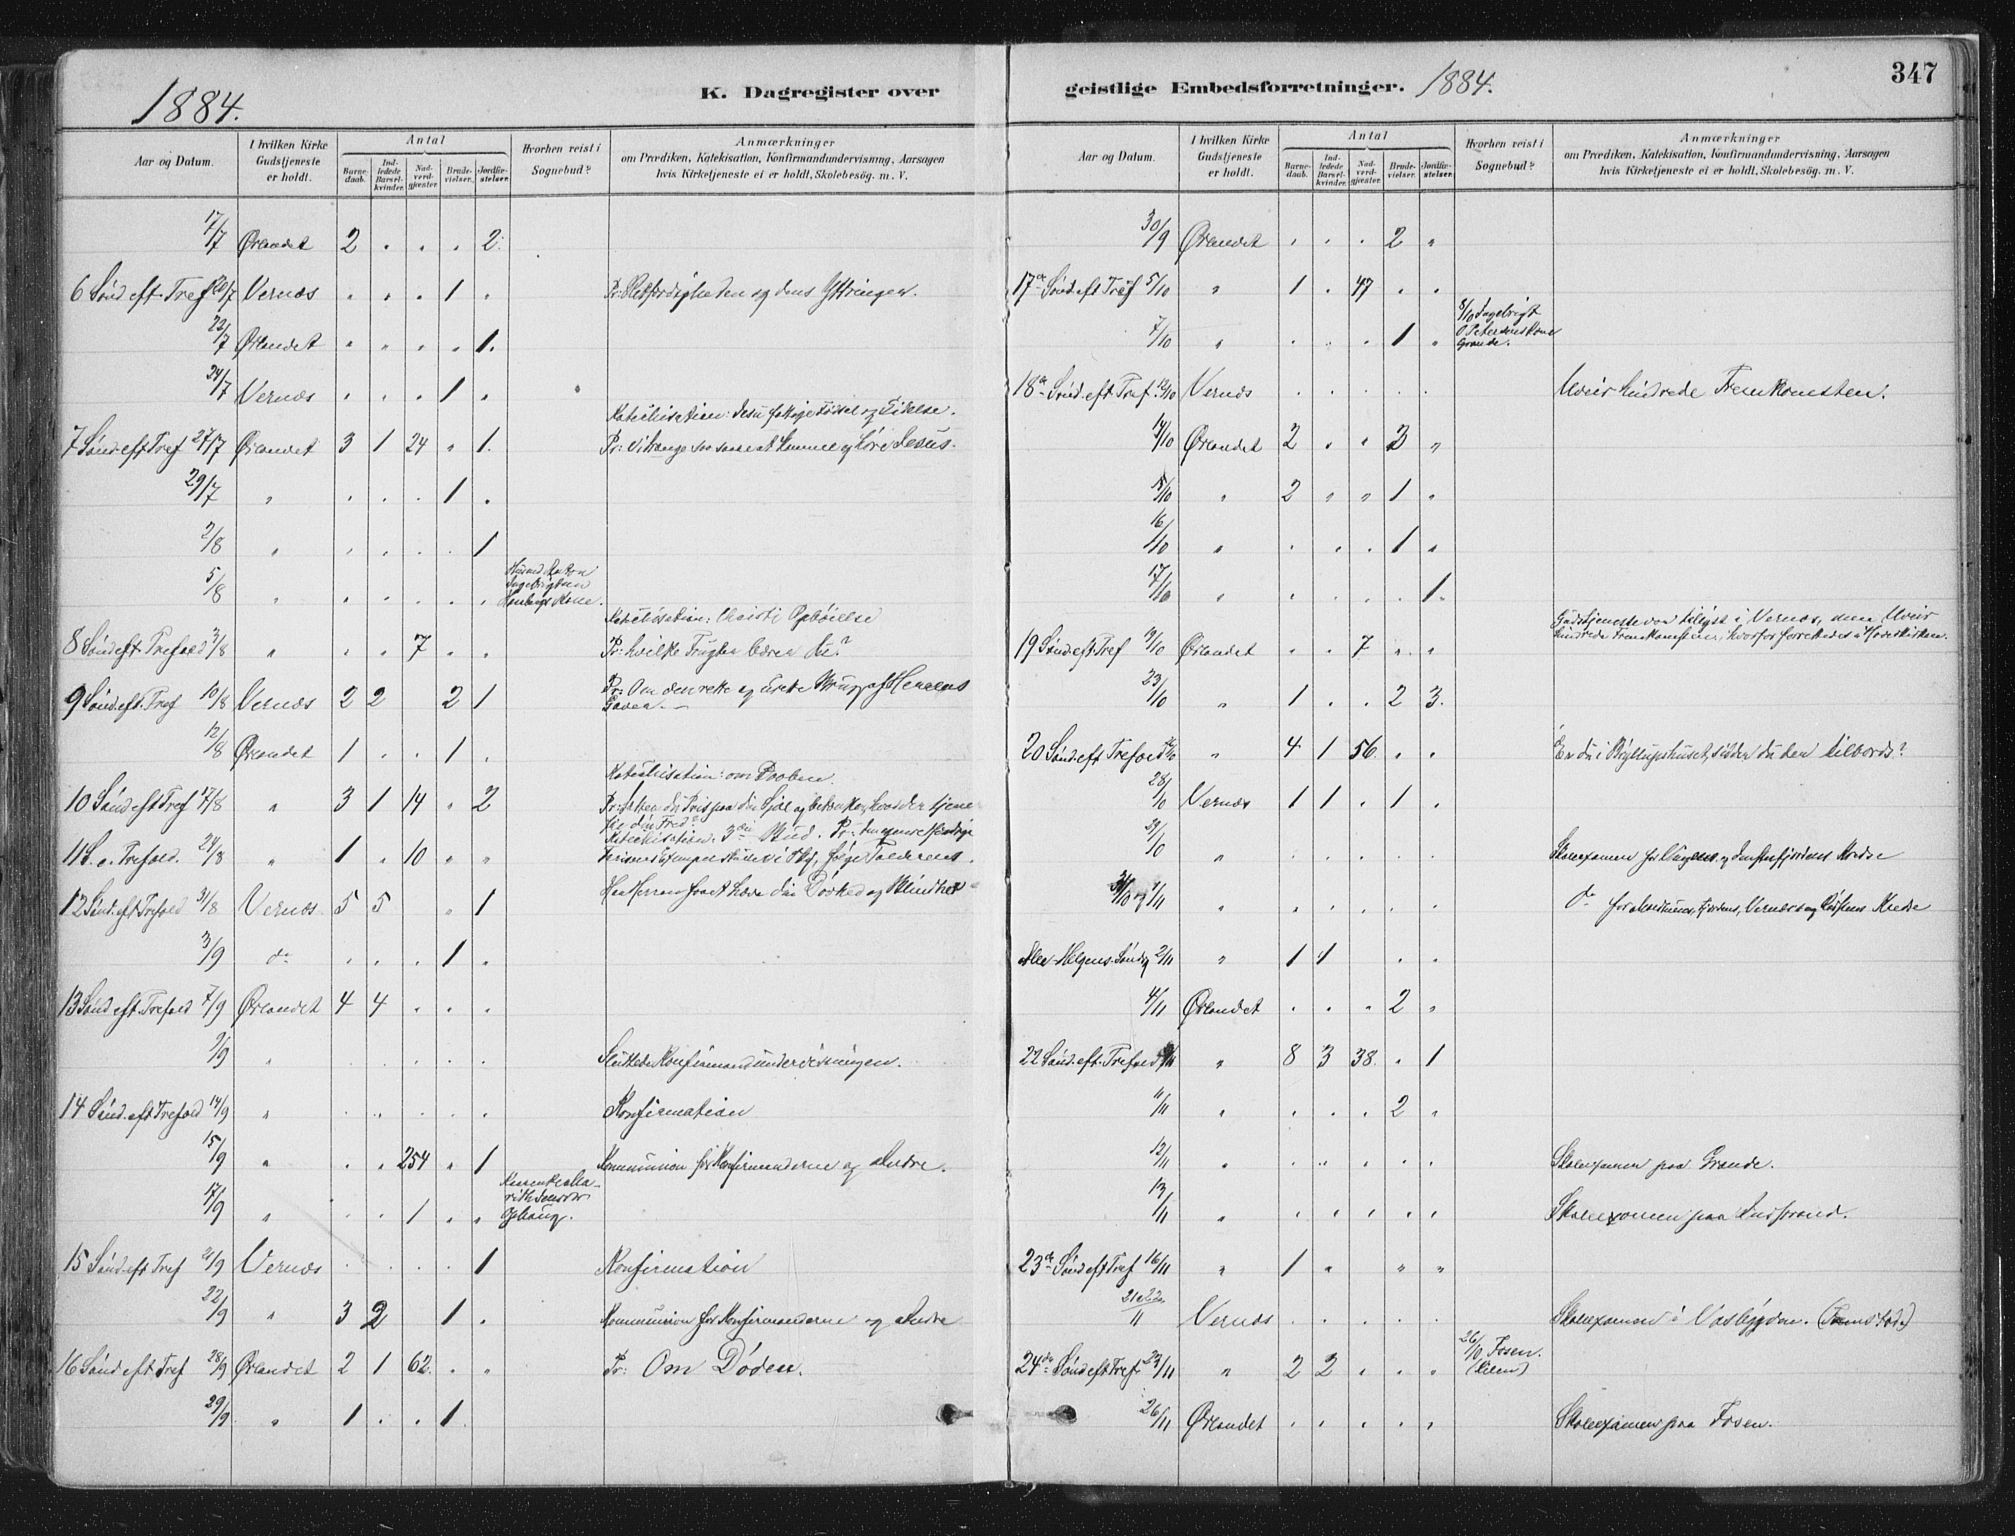 1884.
K. Dagregister over
Aar og Datum.
I hvilken Kirke Gudstjeneste er holdt.
Antal
Barnedaab.
Indledede Barselkvinder.
Nadverdgjester.
Brudevielser.
Jordfæstelser.
Hvorhen reist i Sognebud?
Anmærkninger
om Prædiken, Katekisation, Konfirmandundervisning, Aarsagen
hvis Kirketjeneste ei er holdt, Skolebesøg. m. V.
17/7 Ørlandet 2 " " " 2.
6 Sønd. eft. Tref 20/7 Vernæs " " " 1 " Pr: Retfærdigheden og dens Yttringer.
22/7 Ørlandet " " " " 1.
24/7 Vernæs " " " 1 "
Katechisation: Jesu
7 Sønd eft Tref 27/7 Ørlandet 3 1 24 " 1. Pr: Vi trænge at komme Jesus.
29/7 " " " " 1 "
2/8 " " " " " 1
5/8 " " " " " "
Kone.
Katechisation: Christi Ophöielse
8 Sønd eft. Trefold 3/8 " " " 7 " " Pr: hvilke Frugter bærer du?
9 Sønd. eft. Tref 10/8 Vernæs 2 2 2 1 Pr: Om den rette og Brug af Herrens
Gaver.
12/8 Ørlandet 1 " " 1 "
Katechisation: om Daaben.
10 Sønd eft Tref 17/8 " 3 1 14 " 2 Pr: paa din Sjæl og hvad der tjener
din Fred?
Katechisation: 3die Bud. Pr:
11 S. e. Trefold. 24/8 " 1 " 10 " "
12 Sønd. eft. Trefold 31/8 Vernæs 5 5 " 1 din Døvhed og Blindhed
3/9 do " " " 1 "
13 Sønd eft. Trefold 7/9 Ørlandet 4 4 " " "
9/9 " " " " " " Sluttede Konfirmandundervisningen.
14 Sønd. eft Trefold 14/9 " " " " " " Konfirmation
15/9 " " " 254 " 1 Kommunion for Konfirmanderne og Andre.
17/9 " " " 1 " "
15 Sønd. eft Tref 21/9 Vernæs " " " " 1 Konfirmation
22/9 " 3 2 1 " Kommunion for Konfirmanderne og Andre
16 Sønd eft Tref 28/9 Ørlandet 2 1 62. " " Pr: Om Døden.
29/9 " 1 " " 1
geistlige Embedsforretninger. 1884.
347
Aar og Datum.
I hvilken Kirke Gudstjeneste er holdt.
Antal
Barnedaab.
Indledede Barselkvinder.
Nadverdgjester.
Brudevielser.
Jordfæstelser.
Hvorhen reist i Sognebud?
Anmærkninger
om Prædiken, Katekisation, Konfirmandundervisning, Aarsagen
hvis Kirketjeneste ei er holdt, Skolebesøg. m. V.
30/9 Ørlandet " " " 2 "
17de Sønd. eft Tref 5/10 " 1 " 47 " "
7/10 " " " " 1 " 8/10 Ingebrigt
O Petersens Kone
Grande.
18de Sønd. eft Tref. 12/10 Vernæs " " " " " Uveir hindrede Fremkomsten.
14/10 Ørlandet 2 " " 3 "
15/10 " 2 " " 1 "
16/10 " " " " 1 "
17/10 " " " " " 1.
Gudstjeneste var tillyst i Vernæs, men Uveir
19 Sønd eft Tref 19/10 Ørlandet " " 7 " " hindrede Fremkomsten, hvorfor forrettedes i Hovedkirken.
23/10 " 1 " " 2 3.
20 Sønd. eft Trefold 26/10 " 4 1 56. " " Er du i Bryllupshuset, sidder du der tilbords?
28/10 Vernæs 1 1 " 1 "
29/10 " Skoleexamen for Kredse
31/10 og 1/11 " " " " " " do for Vernæs og Kredse
Alle Helgens Søndg 2/11 " 1 1 " "
4/11 Ørlandet " " " 2 "
22 Sønd. eft. Trefold 9/11 " 8 3 38. " 1
11/11 " " " " 2 "
12/11 " " " " " " Skoleexamen paa Grande.
13/11 " " " " " " Skoleexamen paa
23de Sønd eft Tref 16/11 " 1 " " "
21 & 22/11 Vernæs " " " " " Skoleexamen i
24de Sønd eft Tref. 23/11 " 2 2 " " " 26/10 Fosen.
26/11 Ørlandet " " " " " Skoleexamen paa Fosen.